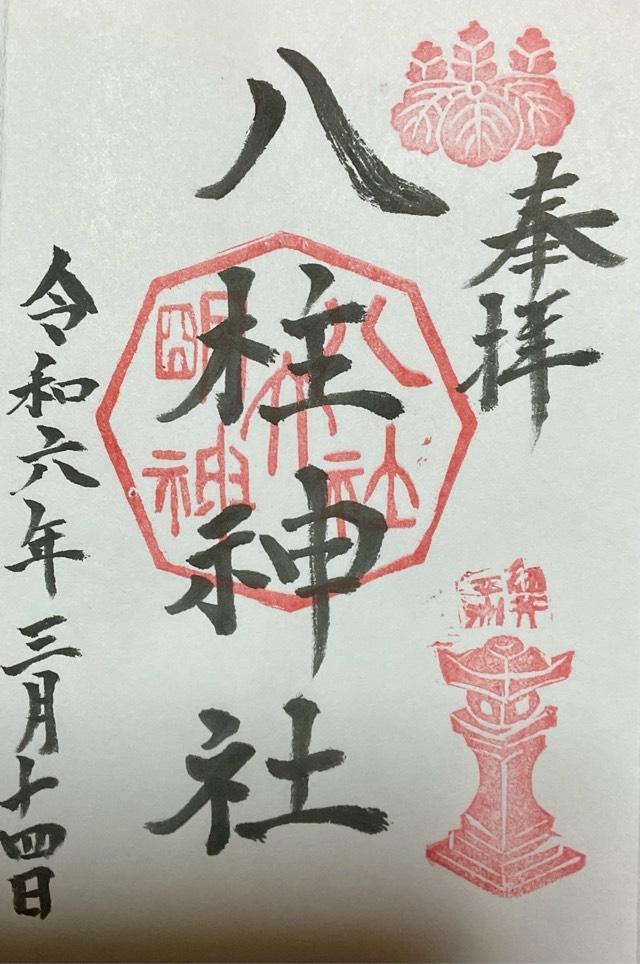 奉拝
八柱神社
令和六年三月十四日